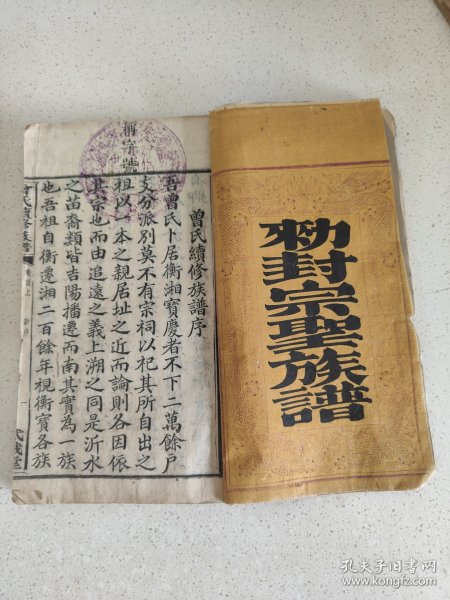 勑封宗聖族譜
曾氏續修族譜序
吾曾氏卜居衡湘寶慶者不下二萬餘戶
支分派別莫不有宗祠以祀其所自出之
祖以一本之親居址之近而論則各因依
其宗也而由追遠之義上溯之同是沂水
之苗裔類皆吉陽播遷而南其實為一族
也吾祖自衡遷湘二百餘年視衡寶各族
曾氏續修族譜
武城堂
字號
孔夫子旧书网
www.kongfz.com